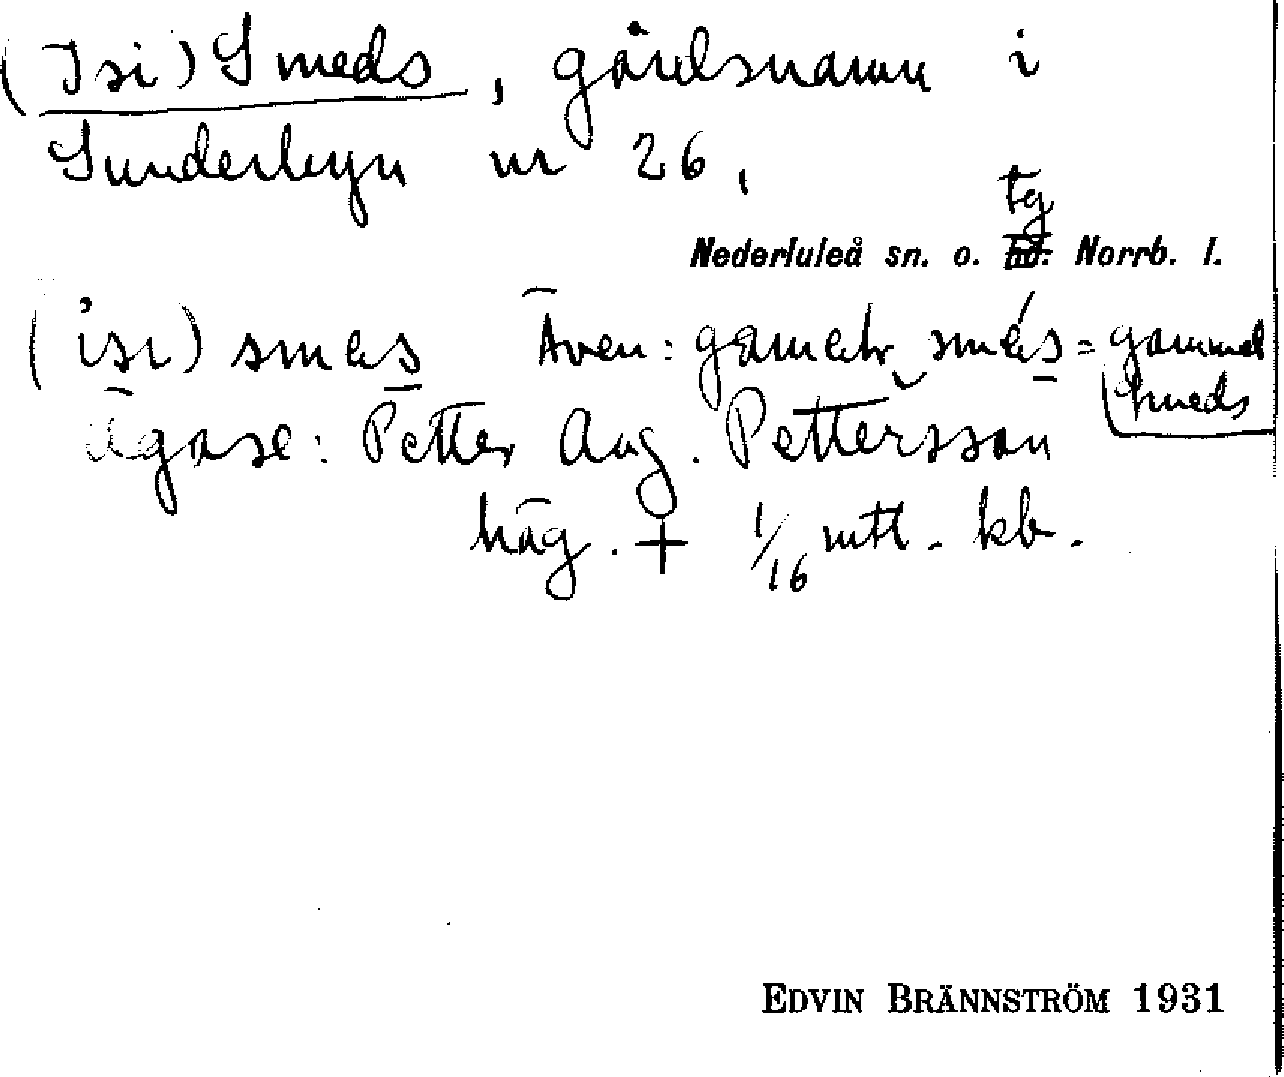 (Isi) Smeds, gårdsnamn i
Sunderbyn nr 26,
tg
Nederluleå sn. o. hd. Norrb. l.
(ísı) smɛs Även: gamɛlṛ smɛ́s = gammel
Smeds
Ägare: Petter Aug. Pettersson
häg. + 1/16 mtl. kb.
EDVIN BRÄNNSTRÖM 1931